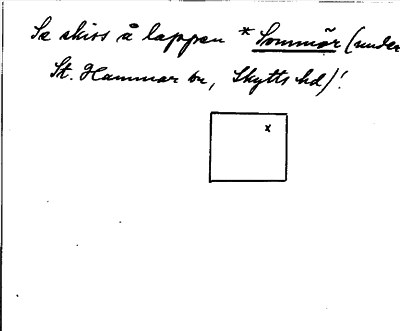 Se skiss å lappen * Sommör (under
St. Hammar by, Skytts hd)!
x